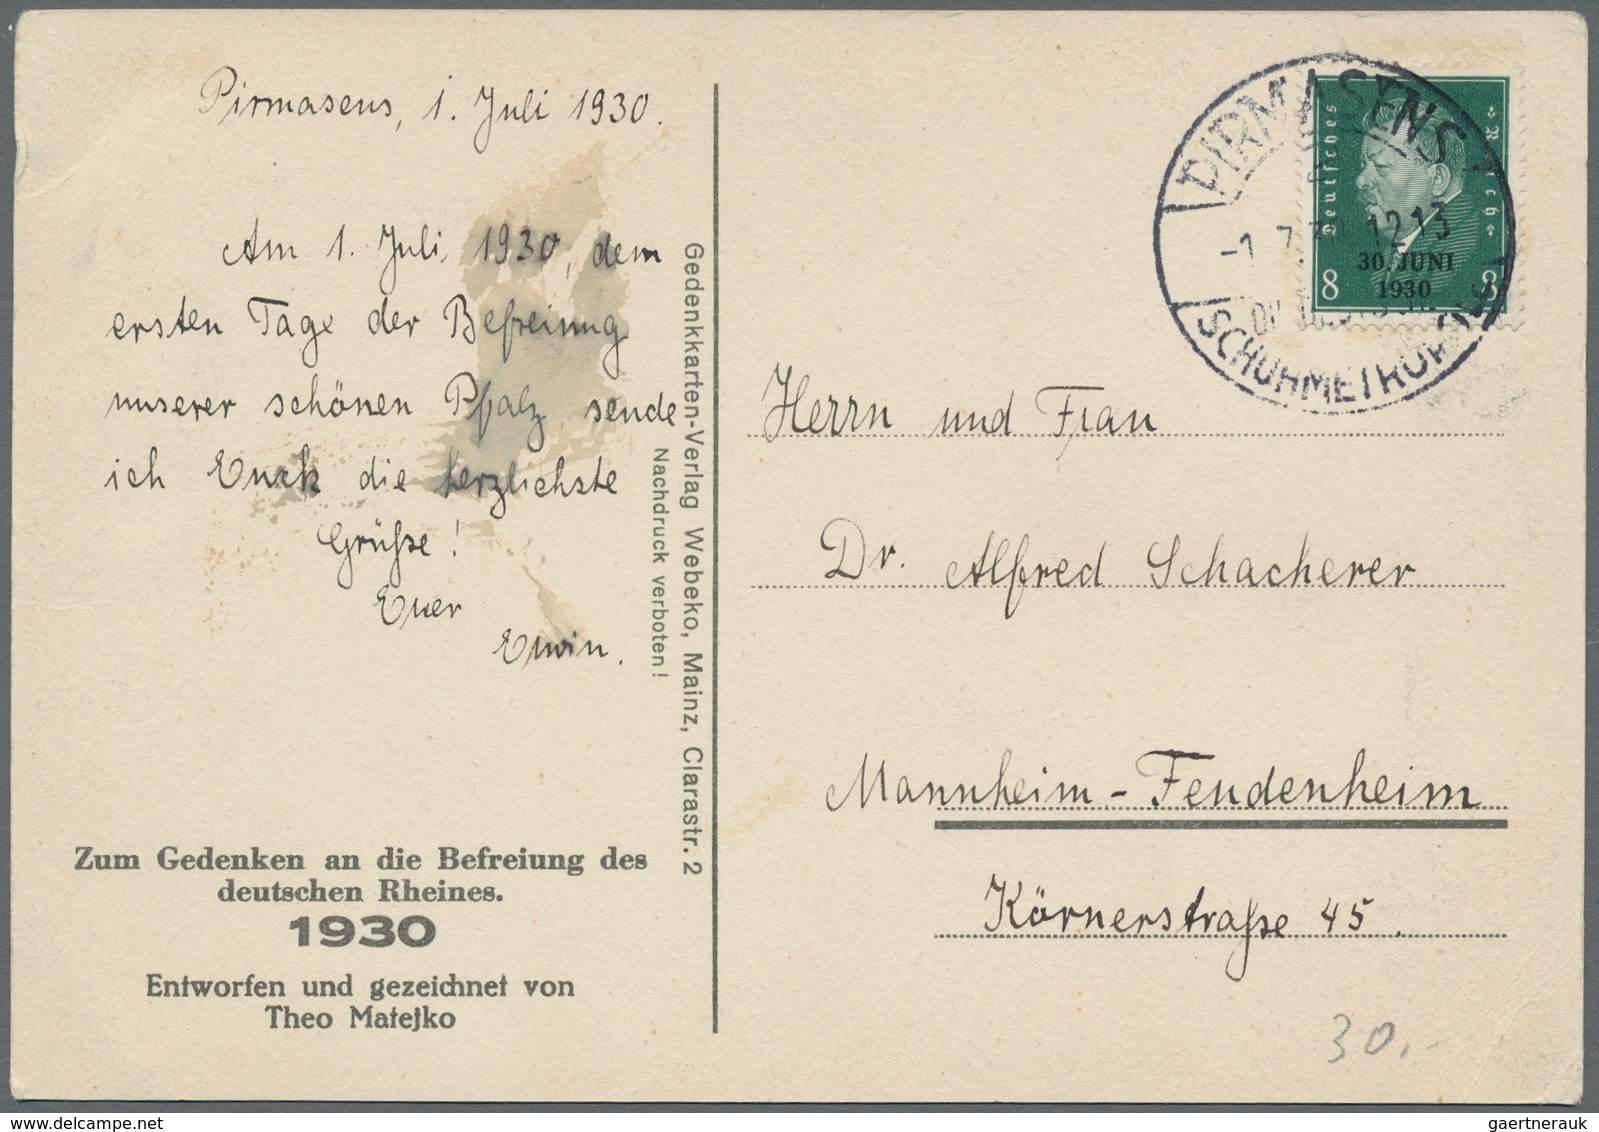 Pirmasens, 1. Juli 1930.
Am 1. Juli, 1930, dem
ersten Tage der Befreiung
unserer schönen Pfalz, sende
ich Euch die herzlichste
Grüße!
Euer
Erwin.
Zum Gedenken an die Befreiung des
deutschen Rheines.
1930
Entworfen und gezeichnet von
Theo Matejko
Gedenkkarten-Verlag Webeko, Mainz, Clarastr. 2
Nachdruck verboten!
PIRMASENS
-1.7.30 12-13
SCHUHMETROPOLE
Deutsches
Reich
30. JUNI
1930
8
8
Herrn und Frau
Dr. Alfred Schacherer
Mannheim - Feudenheim
Körnerstraße 45.
30,-
gaertnerauk